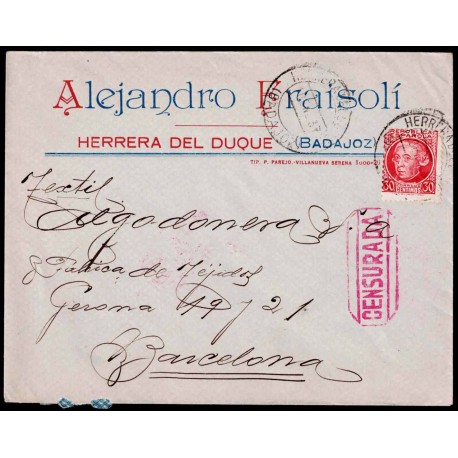 Alejandro Fraisolí
HERRERA DEL DUQUE (BADAJOZ)
TIP. P. PAREJO.-VILLANUEVA SERENA
HERRERA
30 30
CENTIMOS
CENSURADA
Textil
Algodonera S. A
Fábrica de Tejidos
Gerona 49 y 21
Barcelona